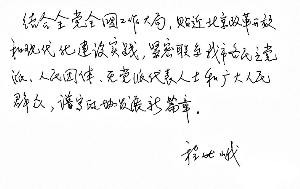 结合全党全国工作大局，贴近北京改革开放
和现代化建设实践，紧密联系我市各民主党
派、人民团体、无党派代表人士和广大人民
群众，谱写政协发展新篇章。
程世峨